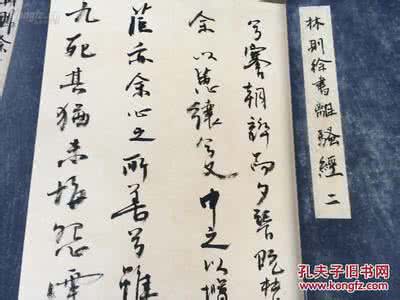 林則徐書離騷經 二
兮謇朝誶而夕替既替
余以蕙纕兮又申之以攬
茝亦余心之所善兮雖
九死其猶未悔怨靈
則徐
孔夫子旧书网